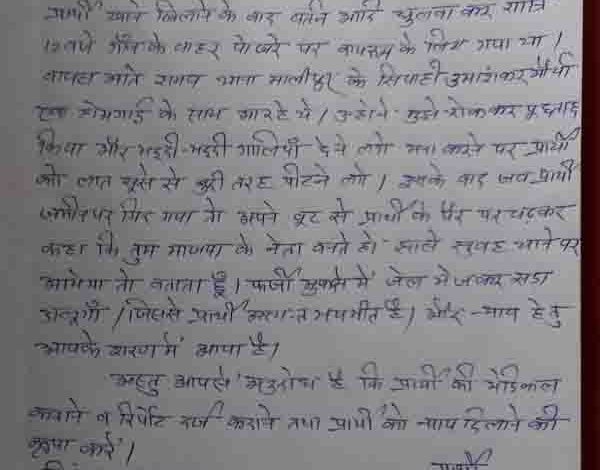 प्रार्थी खाने खिलाने के बाद बर्तन आदि धुलवा कर रात्रि
12 बजे गाँव के बाहर पोखरे पर बाथरूम के लिए गया था।
वापस आते समय थाना मालीपुर के सिपाही उमाशंकर मौर्या
एक होमगार्ड के साथ आ रहे थे। उन्होंने मुझे रोककर पूछताछ
किया और भद्दी-भद्दी गालियाँ देने लगे मना करने पर प्रार्थी
को लात घूसे से बुरी तरह पीटने लगे। इसके बाद जब प्रार्थी
जमीन पर गिर गया तो अपने बूट से प्रार्थी के पैर पर चढ़कर
कहा कि तुम भाजपा के नेता बनते हो। साले सुबह थाने पर
आयेगा तो बताता हूँ। फर्जी मुकदमे में जेल भेजकर सड़ा
डालूगाँ। जिससे प्रार्थी अत्यन्त भयभीत है। और न्याय हेतु
आपके शरण में आया है।
अस्तु आपसे अनुरोध है कि प्रार्थी की मेडिकल
कराने व रिपोर्ट दर्ज कराने तथा प्रार्थी को न्याय दिलाने की
कृपा करें।
प्रार्थी